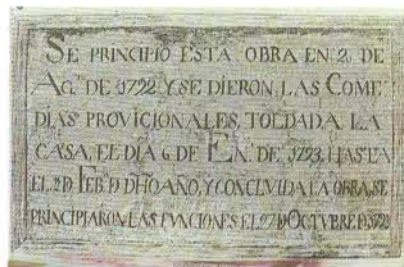 SE PRINCIPIO ESTA OBRA EN 2 DE
AG.º DE 1792 Y SE DIERON, LAS COME
DIAS PROVICIONALES, TOLDADA LA
CASA, EL DIA 6 DE EN.º DE 1793. HASTA
EL 2 D FEB.º D DHO AÑO, Y CONCLVIDA LA OBRA, SE
PRINCIPIARON LAS FVNCIONES EL 27 D OCTVBRE D